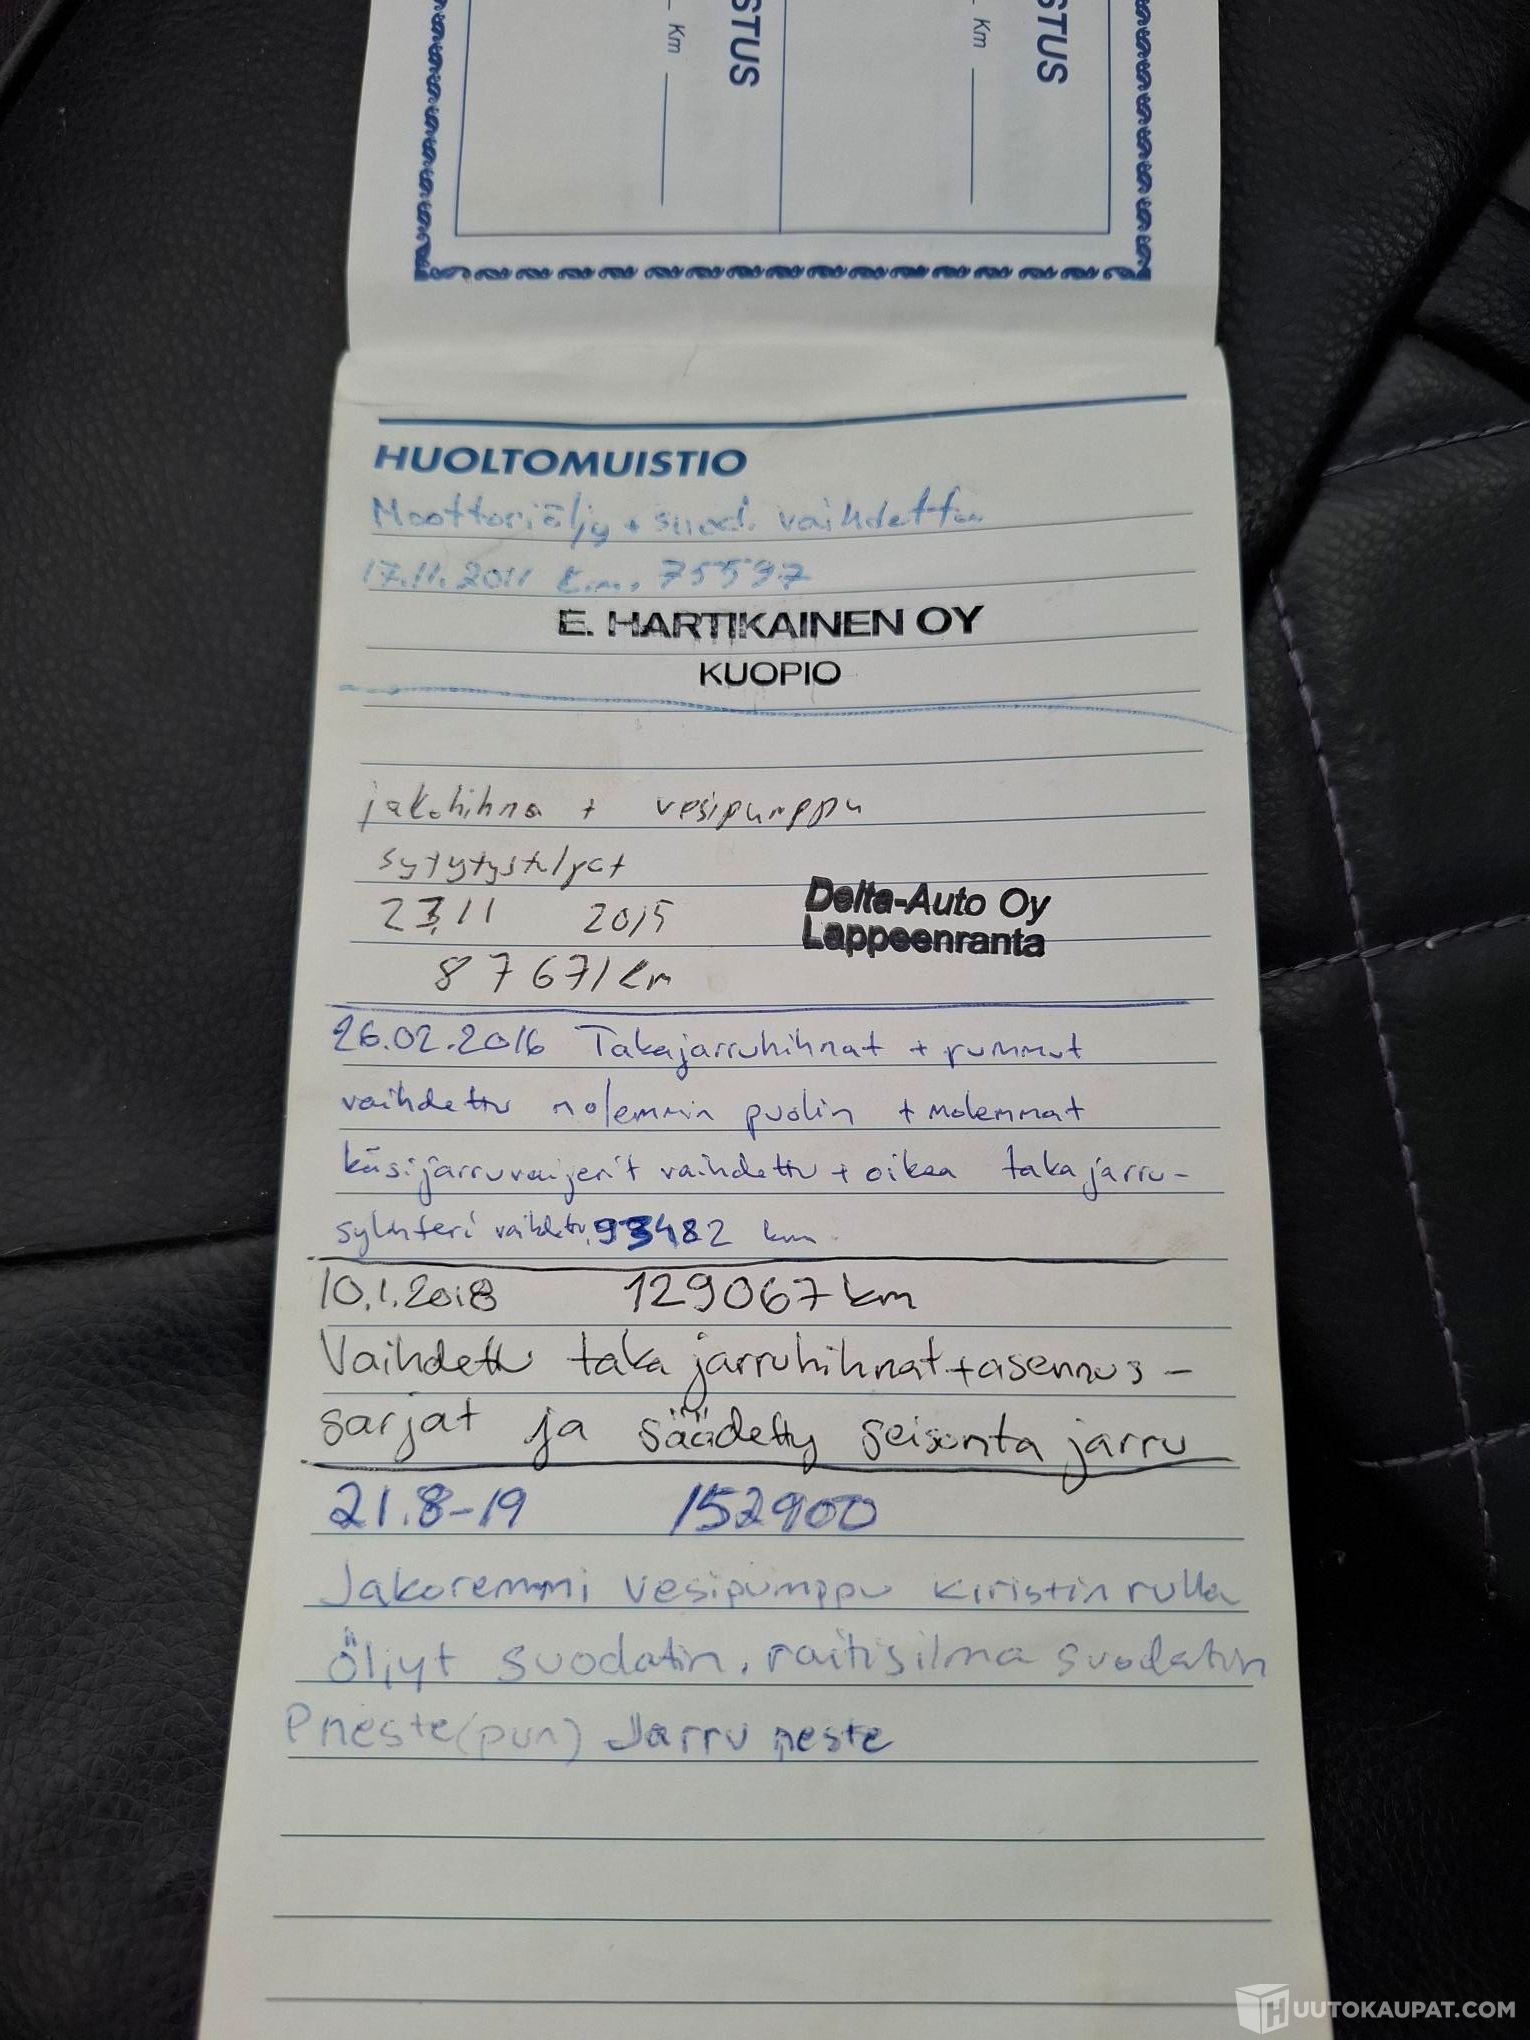 STUS
Km
STUS
Km
HUOLTOMUISTIO
Moottoriöljy + suod. vaihdettu
17.11.2011 km. 75597
E. HARTIKAINEN OY
KUOPIO
jakohihna + vesipumppu
sytytystulpat
23.11 2015
Delta-Auto Oy
Lappeenranta
87671 km
26.02.2016 Takajarruhihnat + rummut
vaihdettu molemmin puolin + molemmat
käsijarruvaijerit vaihdettu + oikea takajarru-
sylinteri vaihdettu. 93482 km
10.1.2018 129067 km
Vaihdettu taka jarruhihnat + asennus-
sarjat ja säädetty seisonta jarru
21.8-19 152900
Jakoremmi vesipumppu kiristin rulla
öljyt suodatin, raitisilma suodatin
Pneste (pun) Jarru neste
HUUTOKAUPAT.COM